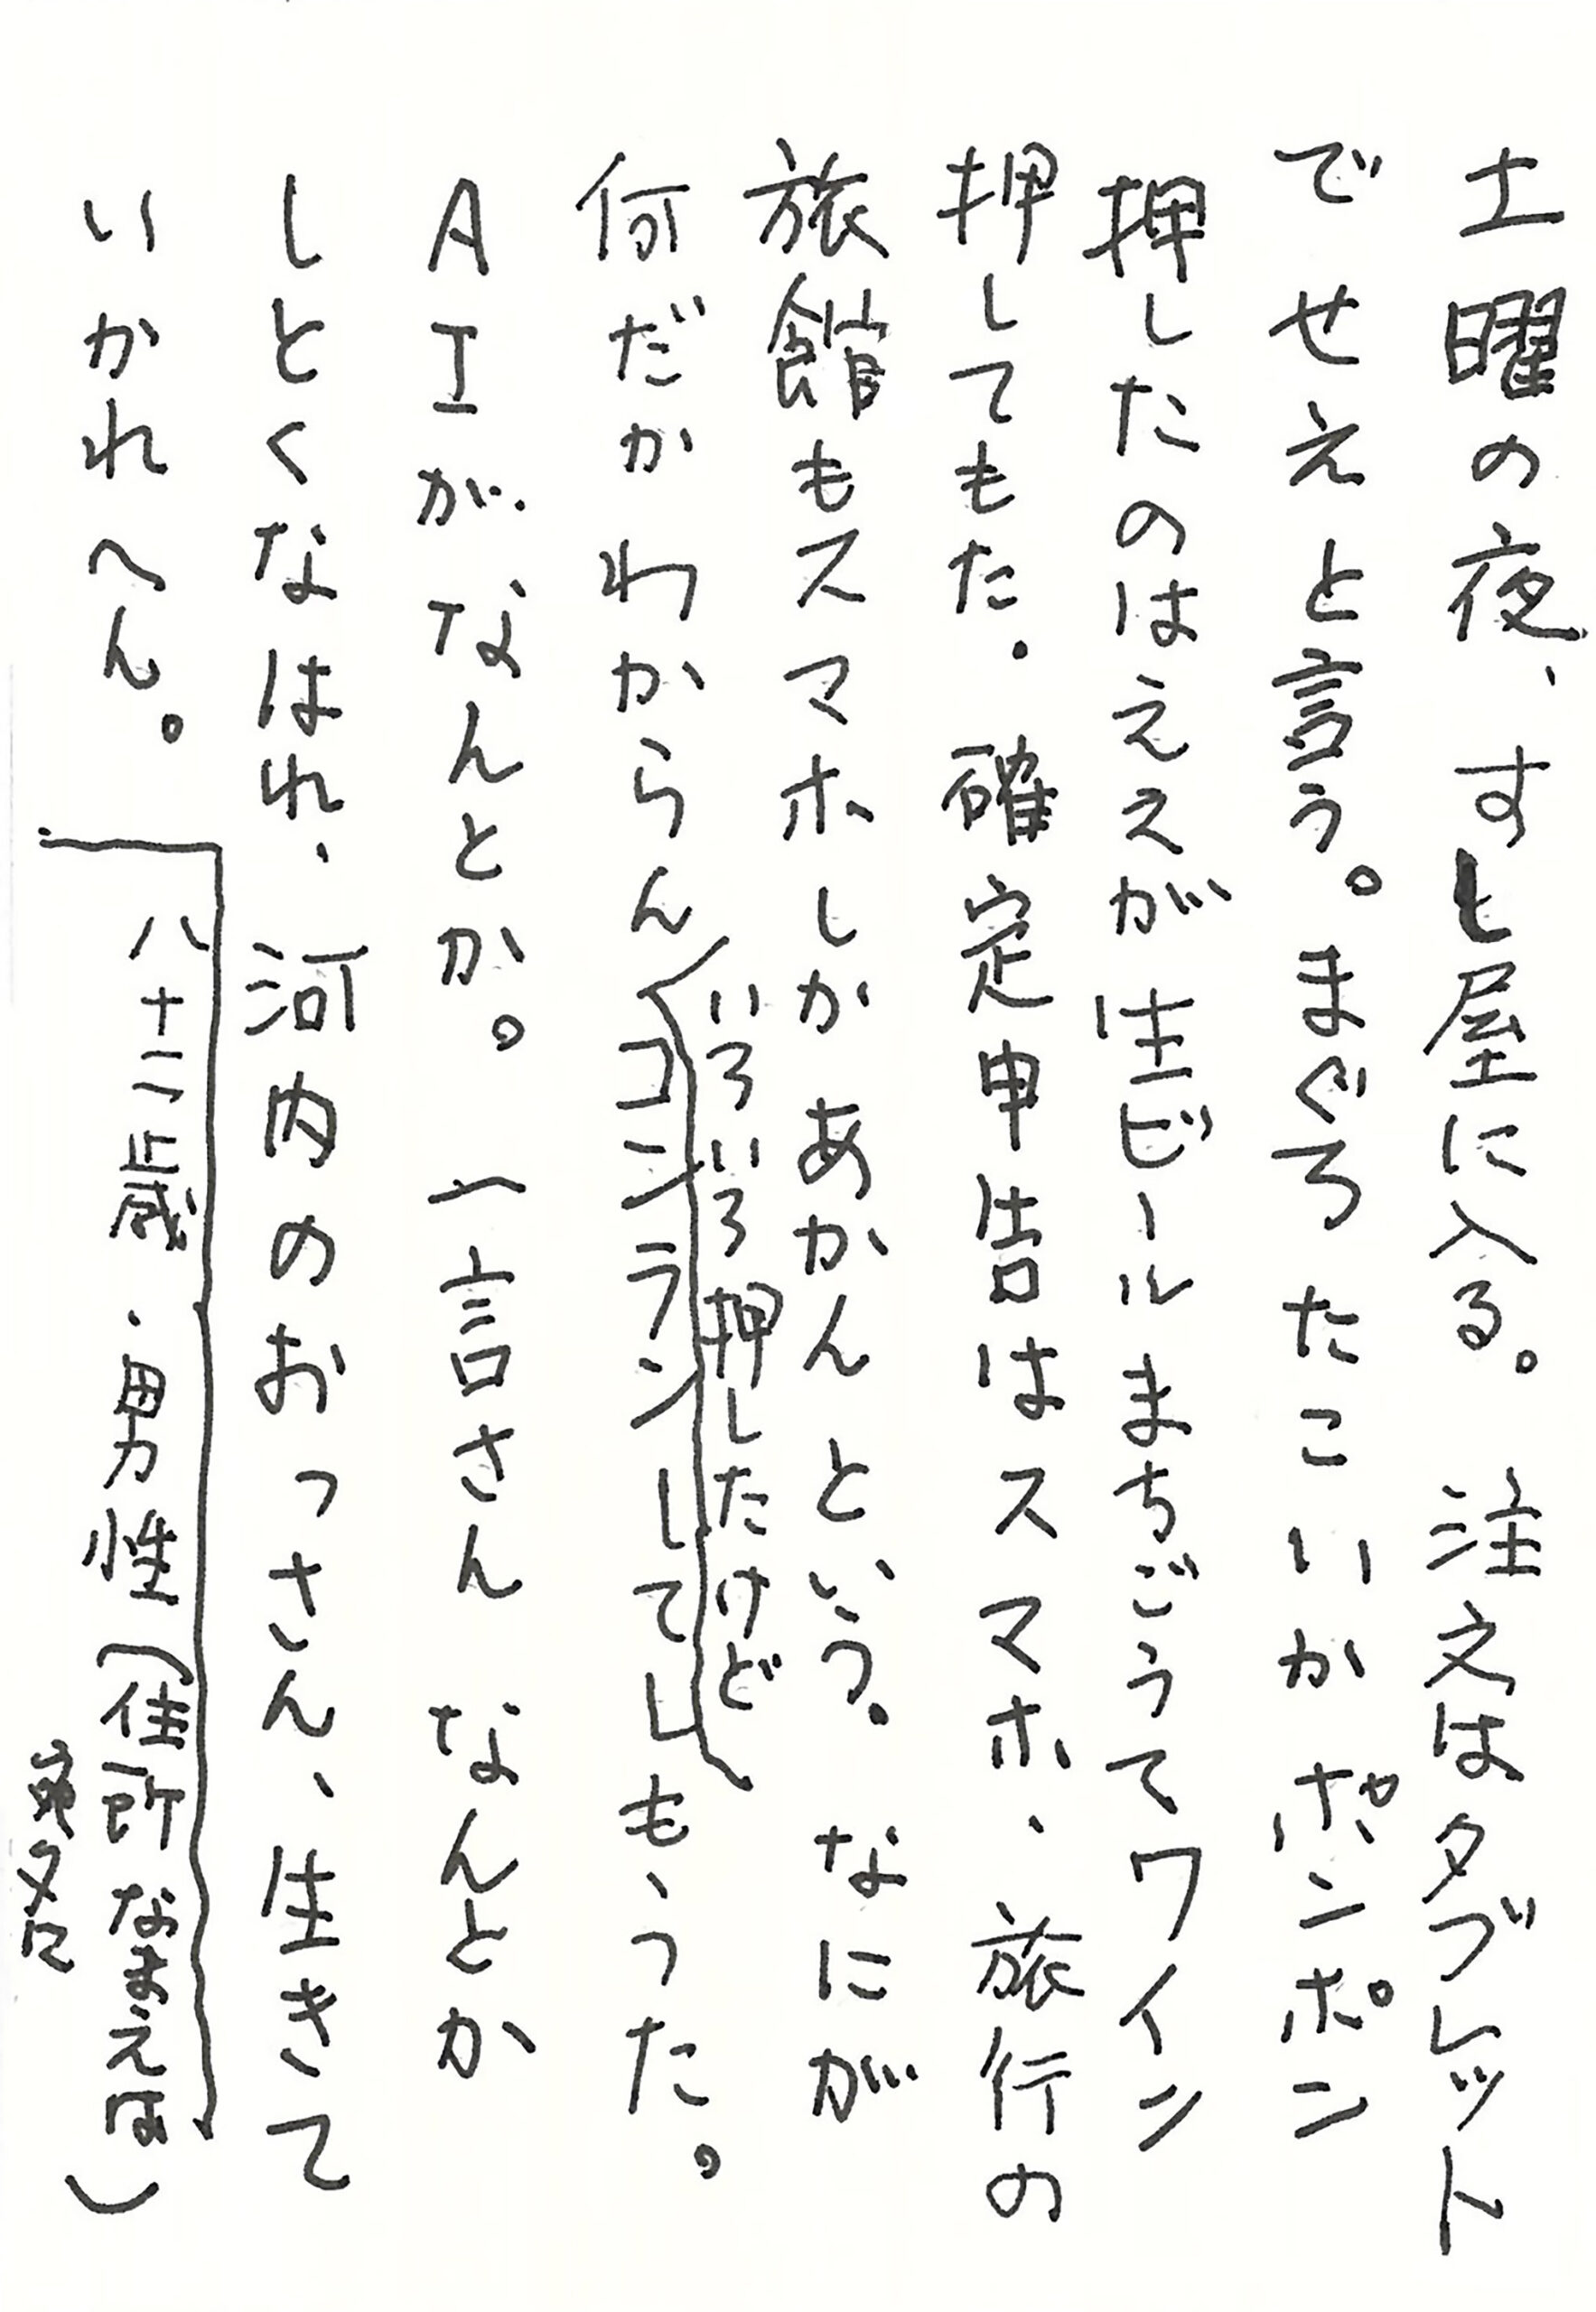 土曜の夜、すし屋に入る。注文はタブレット
でせえと言う。まぐろたこいかポンポン
押したのはええが生ビールまちごうてワイン
押してもた。確定申告はスマホ、旅行の
旅館もスマホしかあかんという。なにが
何だかわからん
いろいろ押したけど
コンランしてしもうた。
AIがなんとか。一言さんなんとか
しとくなはれ、河内のおっさん、生きて
いかれへん。
八十二歳・男性(住所なまえは)